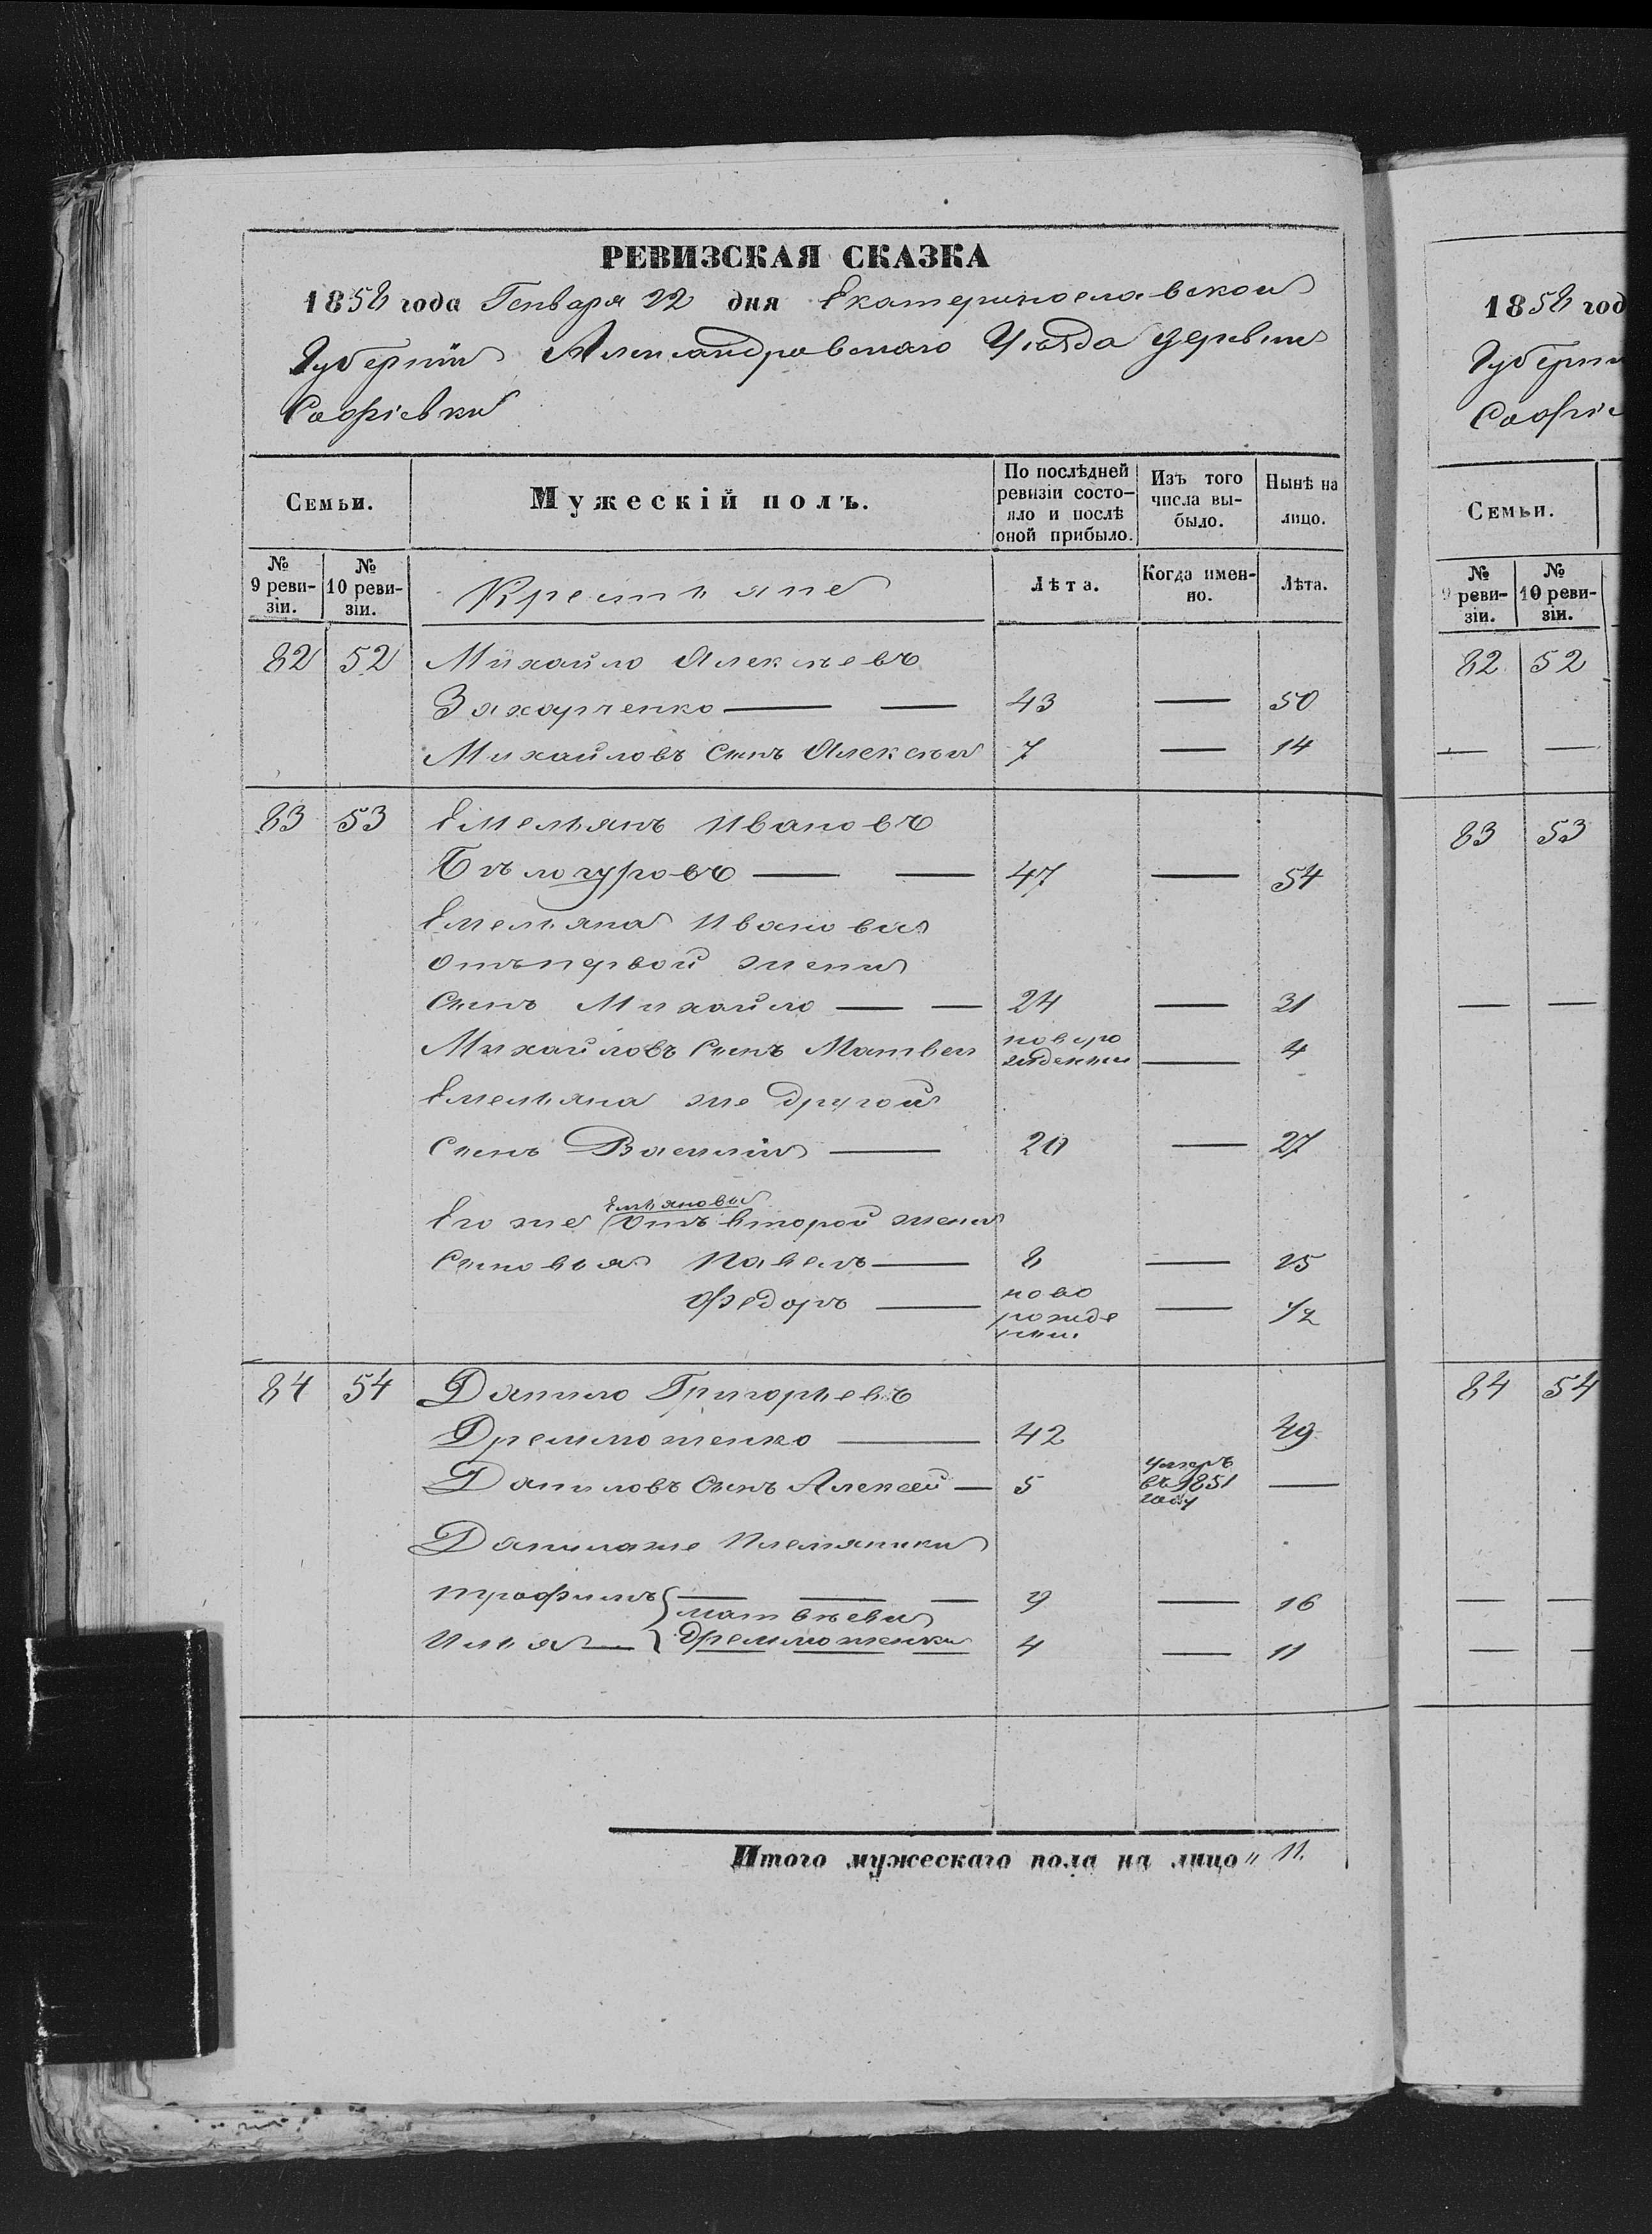 РЕВИЗСКАЯ СКАЗКА
1858 года Генваря 22 дня Екатеринославской
Губерніи Александровскаго Уѣзда деревни
Софіевки
Семьи.
Мужескій полъ.
По послѣдней ревизіи состояло и послѣ оной прибыло.
Изъ того числа выбыло.
Нынѣ на лицо.
№ 9 ревизіи.
№ 10 ревизіи.
Крестьяне
Лѣта.
Когда именно.
Лѣта.
82 52 Михайло Алексѣевъ
Захарченко — — 43 — 50
Михайловъ сынъ Алексѣй 7 — 14
83 53 Емельянъ Ивановъ
Бѣлогуровъ — — 47 — 54
Емельяна Иванова
отъ первой жены
сынъ Михайло — — 24 — 31
Михайловъ сынъ Матвей новорожденный — 4
Емельяна же другой
сынъ Василій — 20 — 27
Емльяновы
Его же отъ второй жены
сыновья Павелъ — 8 — 15
Федоръ — новорожде — 1/2
84 54 Данило Григорьевъ
42 49
Даниловъ сынъ Алексей — 5 умеръ въ 1851 году —
Данила же племянники
Трофимъ — — — 9 — 16
Матвѣевы
Илья — 4 — 11
Итого мужескаго пола на лицо " 11.
1858 год
Губерни
Софіе
Семьи.
№ 9 ревизіи.
№ 10 ревизіи.
82 52
— —
83 53
— —
84 54
— —
— —